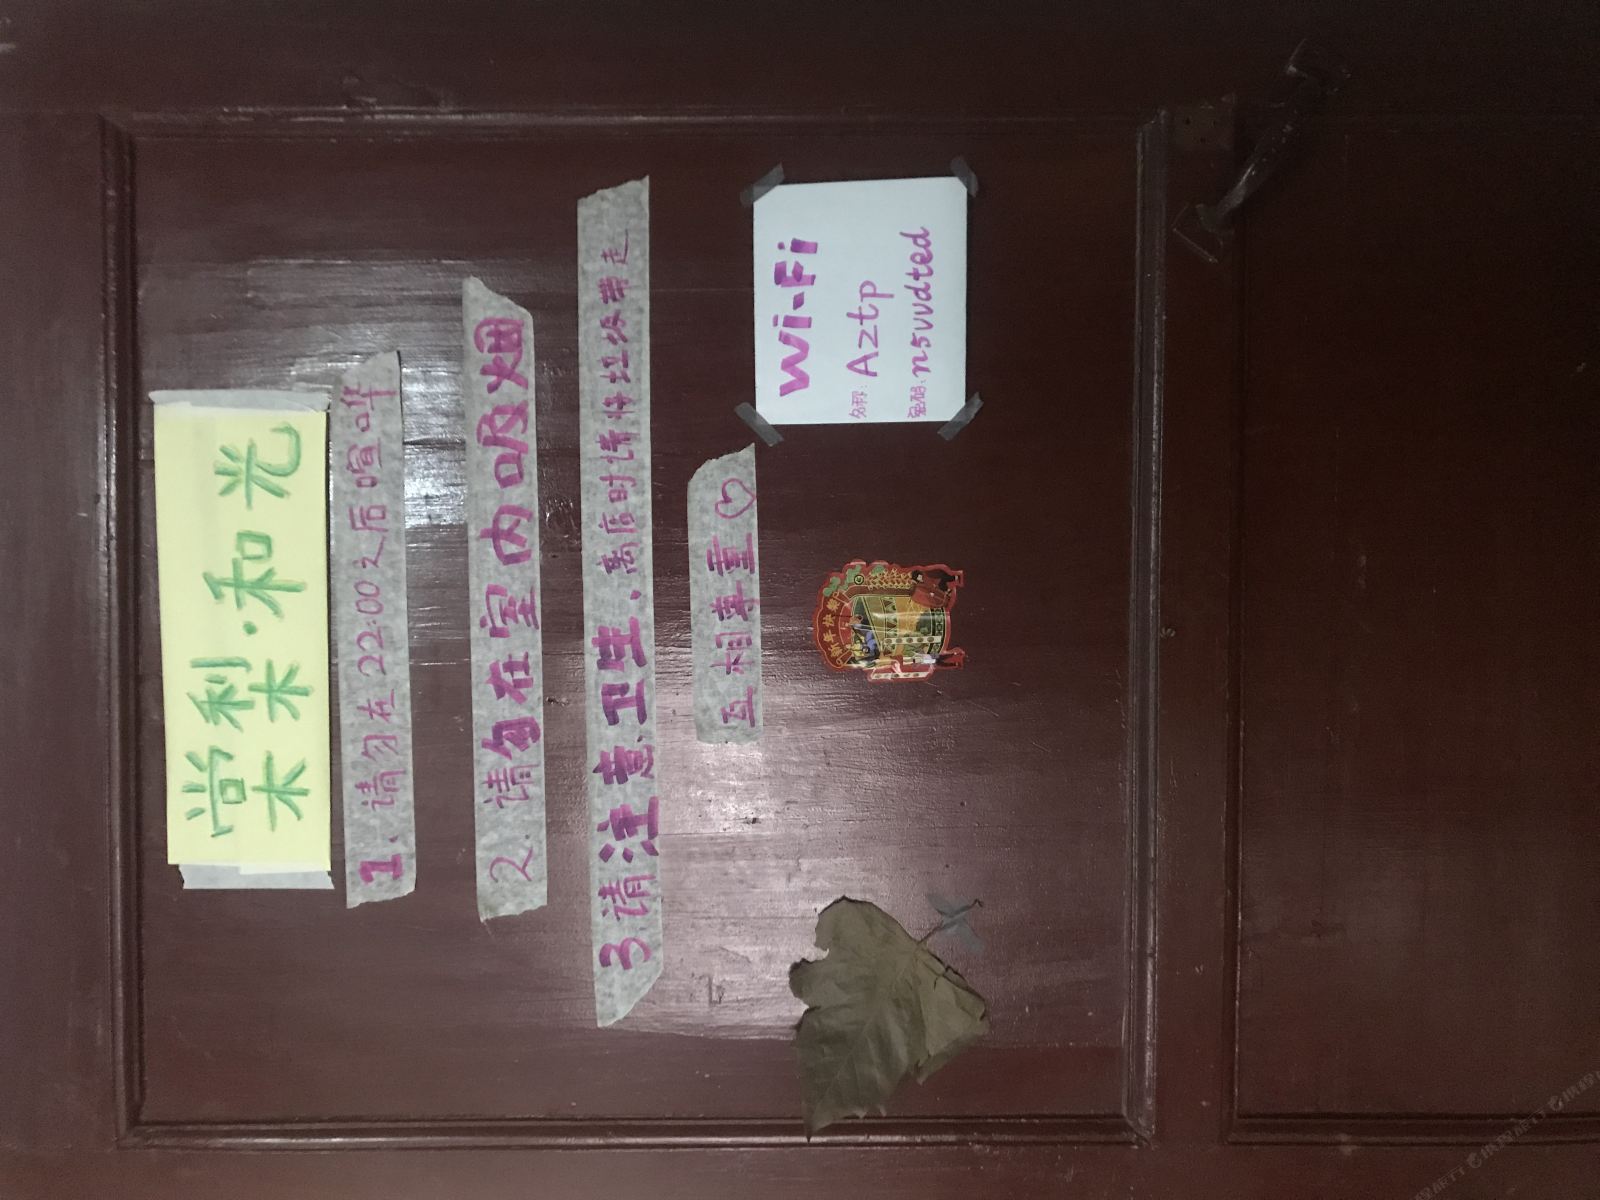 棠梨·和光
1、请勿在22:00之后喧哗
2.请勿在室内吸烟
3.请注意卫生、离店时请将垃圾带走
互相尊重♡
Wi-Fi
名称:Aztp
密码:m5vvdted
新年快樂